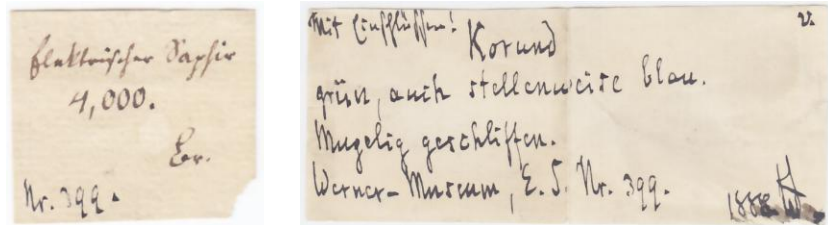 Elektrischer Saphir
4,000.
Br.
Nr. 399.
Mit Einschlüssen! V.
Korund
grün, auch stellenweise blau.
Mugelig geschliffen.
Werner-Museum, E.S. Nr. 399.
1888